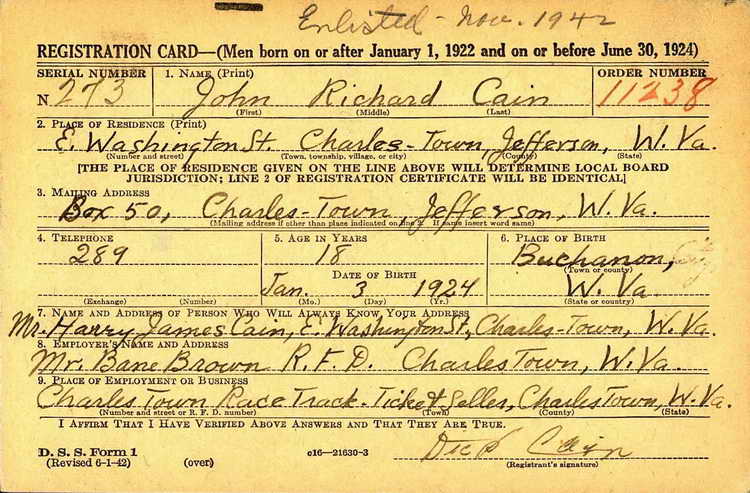 Enlisted - Nov. 1942
REGISTRATION CARD—(Men born on or after January 1, 1922 and on or before June 30, 1924)
SERIAL NUMBER 1. NAME (Print) ORDER NUMBER
N 273 John Richard Cain 11238
(First) (Middle) (Last)
2. PLACE OF RESIDENCE (Print)
E. Washington St. Charles-Town, Jefferson, W. Va.
(Number and street) (Town, township, village, or city) (County) (State)
[THE PLACE OF RESIDENCE GIVEN ON THE LINE ABOVE WILL DETERMINE LOCAL BOARD
JURISDICTION; LINE 2 OF REGISTRATION CERTIFICATE WILL BE IDENTICAL]
3. MAILING ADDRESS
Box 50, Charles-Town, Jefferson, W. Va.
(Mailing address if other than place indicated on line 2. If same insert word same)
4. TELEPHONE 5. AGE IN YEARS 6. PLACE OF BIRTH
289 18 Buchanon,
(Town or county)
DATE OF BIRTH
Jan. 3 1924 W. Va.
(Exchange) (Number) (Mo.) (Day) (Yr.) (State or country)
7. NAME AND ADDRESS OF PERSON WHO WILL ALWAYS KNOW YOUR ADDRESS
Mr. Harry James Cain, E. Washington St., Charles-Town, W. Va.
8. EMPLOYER'S NAME AND ADDRESS
Mr. Bane Brown R.F.D. Charles Town, W. Va.
9. PLACE OF EMPLOYMENT OR BUSINESS
Charles Town Race Track-Ticket Seller, Charles Town, W. Va.
(Number and street or R. F. D. number) (Town) (County) (State)
I AFFIRM THAT I HAVE VERIFIED ABOVE ANSWERS AND THAT THEY ARE TRUE.
D. S. S. Form 1 c16—21630-3 Dick Cain
(Revised 6-1-42) (over) (Registrant's signature)